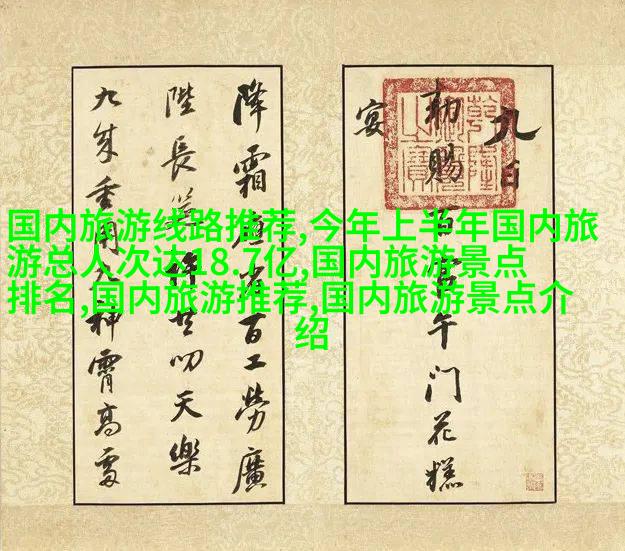 国内旅游线路推荐,今年上半年国内旅
游总人次达18.7亿,国内旅游景点
排名,国内旅游推荐,国内旅游景点介
绍
九日
勑賜百官午門花糕
宴
降霜應百工勞廣
陛長筵許共叨天樂
九成重神霄高處
乾隆
之寶